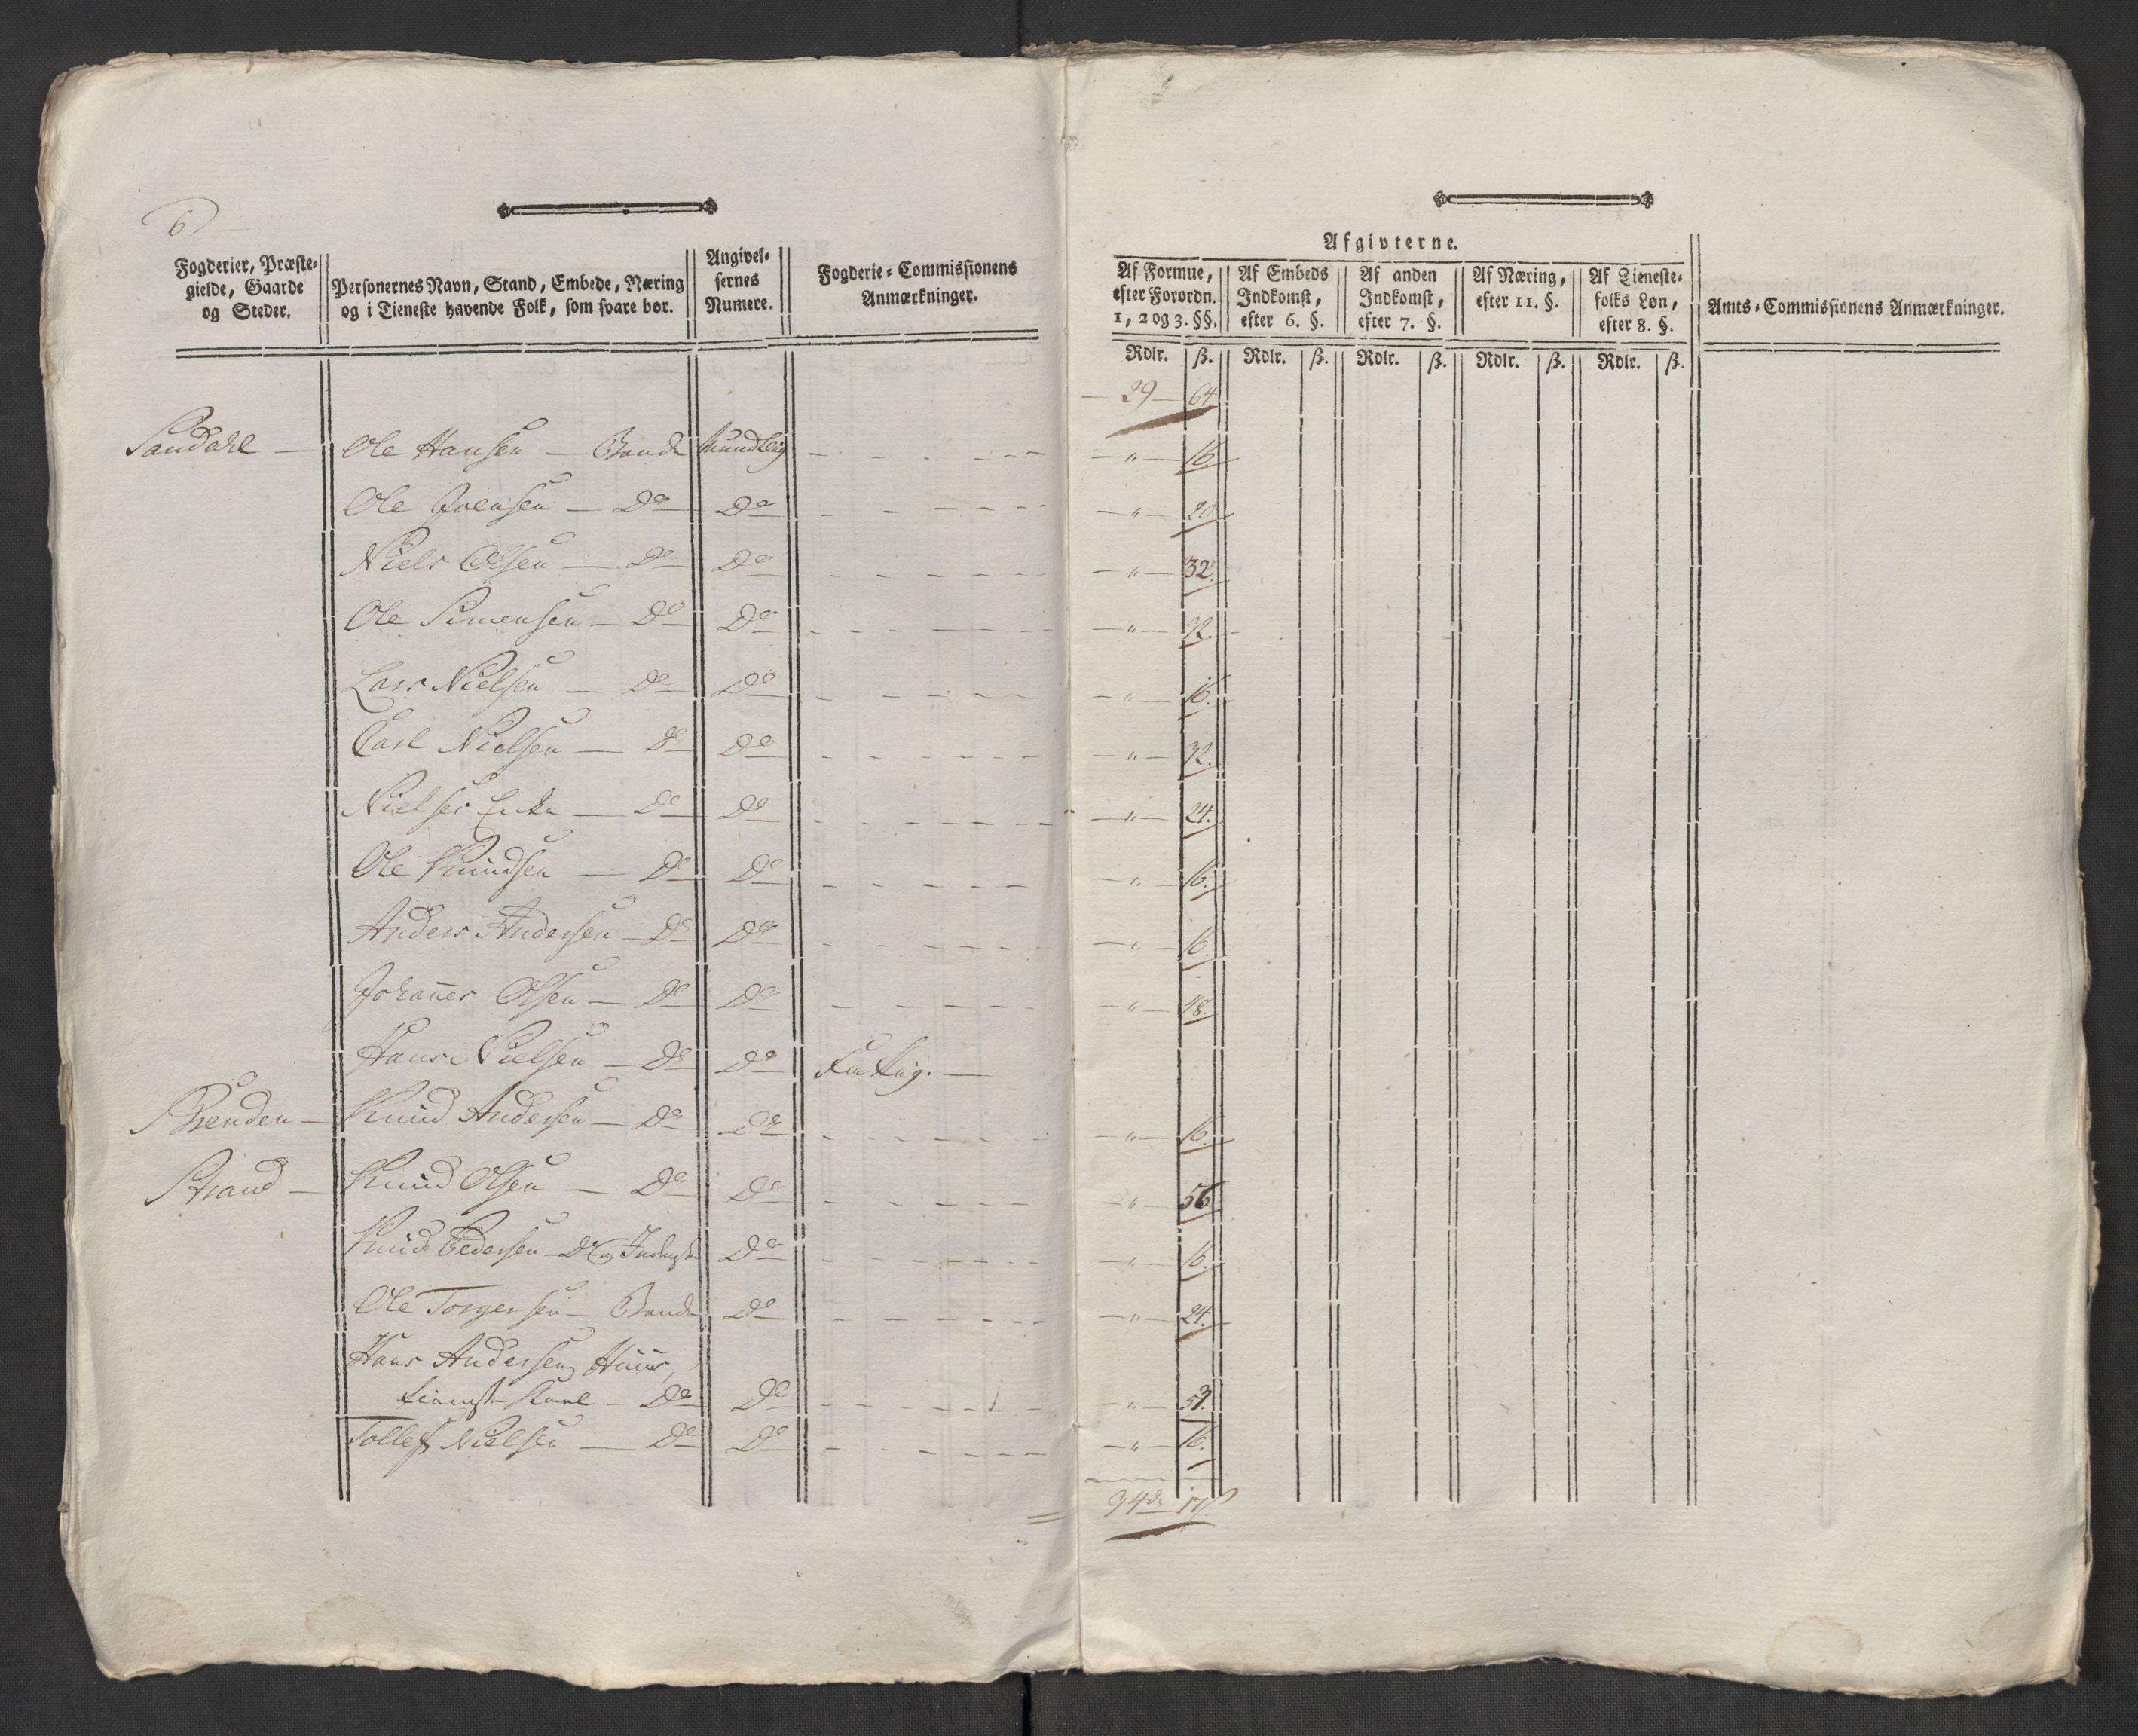 6
Fogderier, Præste-
gielde, Gaarde
og Steder.
Personernes Navn, Stand, Embede, Næring
og i Tieneste havende Folk, som svare bør.
Angivel-
sernes
Numere.
Fogderie-Commissionens
Anmærkninger.
Afgivterne.
Af Formue,
efter Forordn.
1, 2 og 3. §§.
Af Embeds
Indkomst,
efter 6. §.
Af anden
Indkomst,
efter 7. §.
Af Næring,
efter 11. §.
Af Tieneste-
folks Løn,
efter 8. §.
Amts-Commissionens Anmærkninger.
Rdlr. ß. Rdlr. ß. Rdlr. ß. Rdlr. ß. Rdlr. ß.
29 — 64
Sandahl — Ole Hansen — Bonde Mundtlig — " — 16.
Ole Joensen — Do Do — " — 20
Niels Olsen — Do Do — " — 32.
Ole Simensen — Do Do — " — 32.
Lars Nielsen — Do Do — " — 16.
Carl Nielsen — Do Do — " — 32.
Nielses Enke — Do Do — " — 24.
Ole Knudsen — Do Do — " — 16.
Anders Andersen — Do Do — " — 16.
Johanes Olsen — Do Do — " — 48.
Hans Nielsen — Do Do Fattig. —
Knud Andersen — Do Do — " — 16.
Strand — Knud Olsen — Do Do — " — 56
Knud Pedersen — Do Do — " — 16.
Ole Torgersen — Bonde Do — " — 24.
Hans Andersen Huus,
tieneste Karl — Do Do — " —
Tollef Nielsen — Do Do — " — 16.
34 d 17 ß